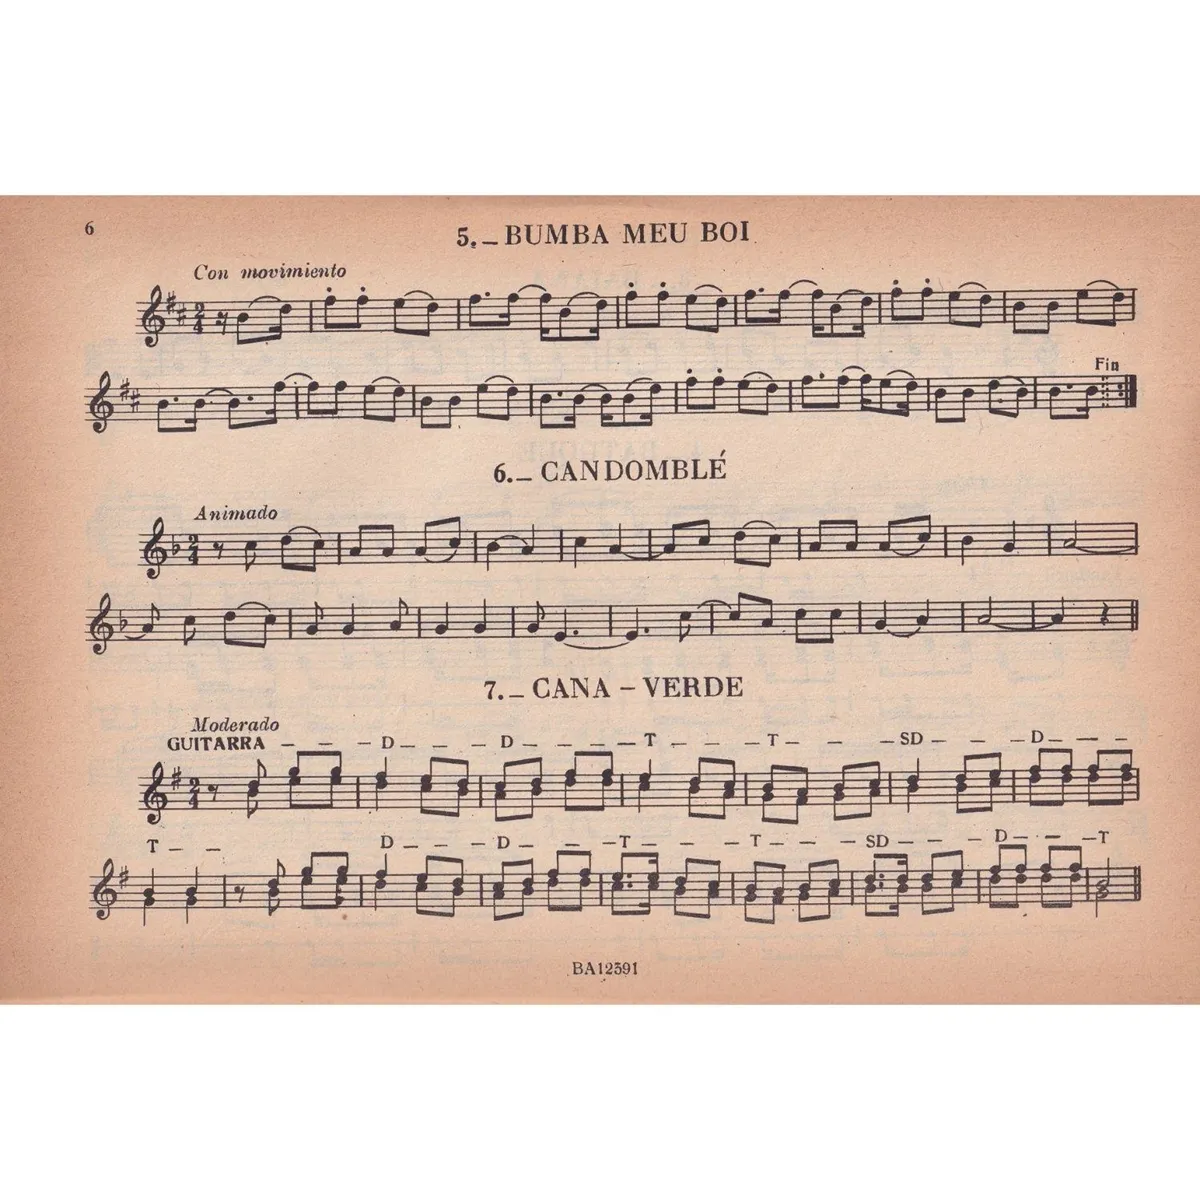 6
5._BUMBA MEU BOI
Con movimiento
2 4
Fin
6._CANDOMBLÉ
Animado
2 4
7._CANA - VERDE
Moderado
GUITARRA _ _ _ D _ _ _ D _ _ _ _ T _ _ _ _ T _ _ _ SD _ _ _ D _ _ _
2 4
T _ _ D _ _ _ D _ _ _ T _ _ _ T _ _ _ SD _ _ _ D _ _ _ T
BA12391